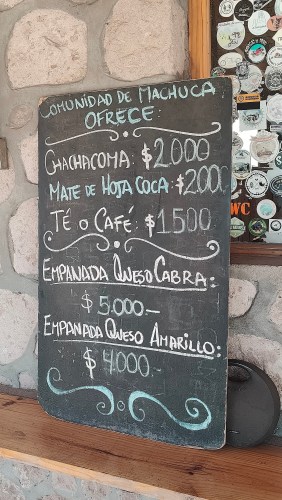 COMUNIDAD DE MACHUCA
OFRECE:
CHACHACOMA: $2.000
MATE DE HOJA COCA: $2.000
TÉ O CAFÉ: $1500
EMPANADA QUESO CABRA:
$5.000.-
EMPANADA QUESO AMARILLO:
$4000.-
WC